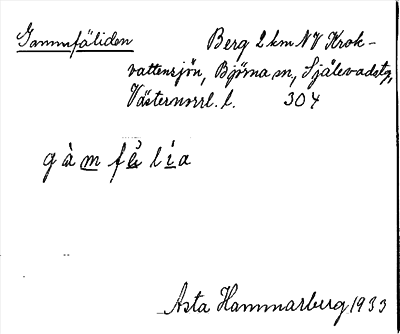 Gammfäliden Berg 2 km NV Krok-
vattensjön, Björna sn, Själevadstg,
Västernorrl. l. 304
gàm félia
Asta Hammarberg 1933